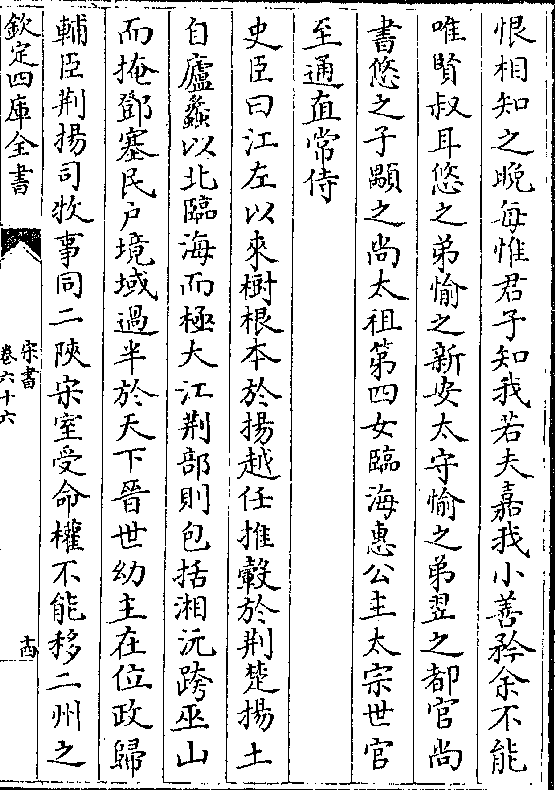 恨相知之晩每惟君子知我若夫嘉我小善矜余不能
唯賢叔耳悠之弟愉之新安太守愉之弟翌之都官尚
書悠之子顒之尚太祖第四女臨海惠公主太宗世官
至通直常侍
史臣曰江左以來樹根本於揚越任推轂於荆楚揚土
自廬蠡以北臨海而極大江荆部則包括湘沅跨巫山
而掩鄧塞民戶境域過半於天下晉世幼主在位政歸
輔臣荆揚司牧事同二陝宋室受命權不能移二州之
欽定四庫全書
宋書
卷六十六
十四